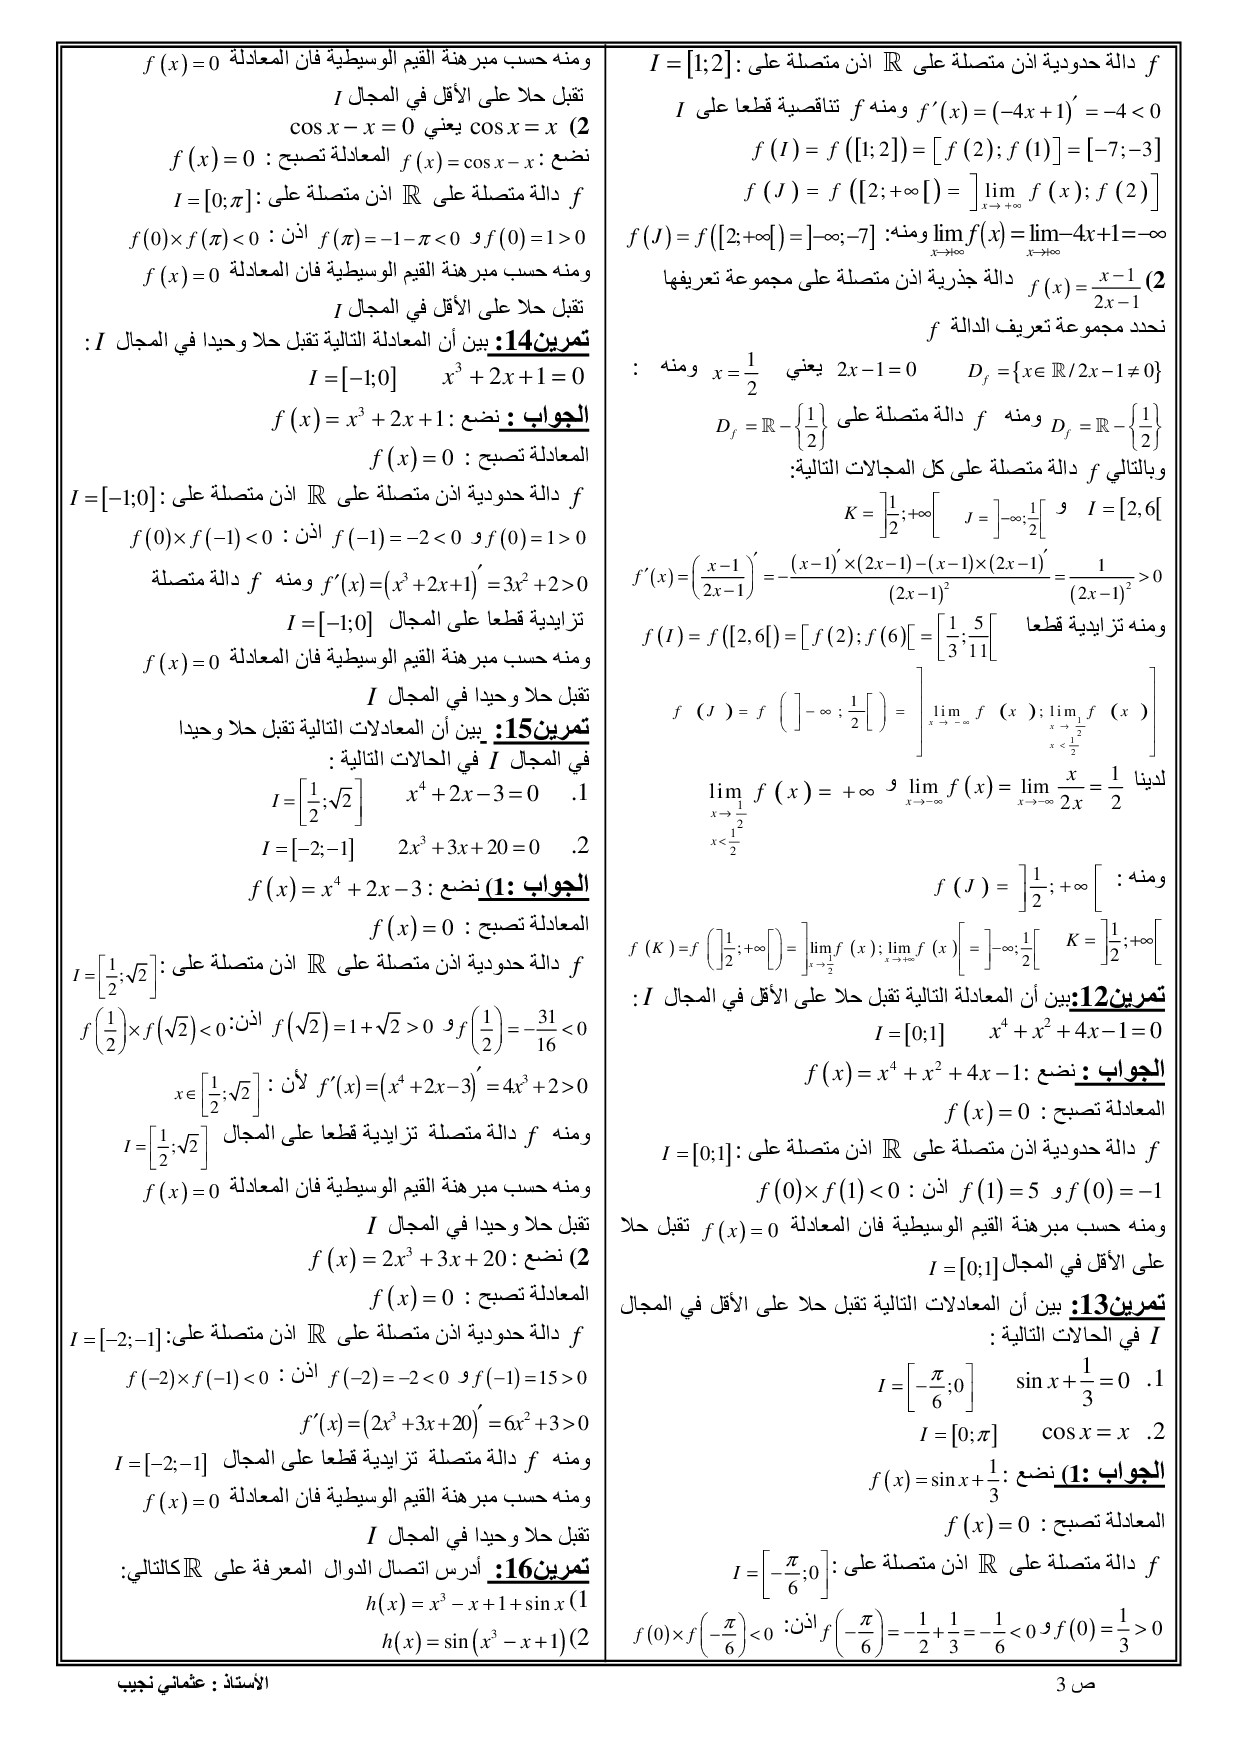 f دالة حدودية اذن متصلة على ℝ اذن متصلة على : I = [1;2]
f′(x) = (−4x+1)′ = −4 < 0 ومنه f تناقصية قطعا على I
f(I) = f([1;2]) = [f(2); f(1)] = [−7;−3]
f(J) = f([2;+∞[) = ]lim x→+∞ f(x); f(2)]
lim x→+∞ f(x) = lim x→+∞ −4x+1 = −∞ ومنه: f(J) = f([2;+∞[) = ]−∞;−7]
2) f(x) = (x−1)/(2x−1) دالة جذرية اذن متصلة على مجموعة تعريفها
نحدد مجموعة تعريف الدالة f
D_f = {x ∈ ℝ / 2x−1 ≠ 0} 2x−1 = 0 يعني x = 1/2 ومنه :
D_f = ℝ − {1/2} ومنه f دالة متصلة على D_f = ℝ − {1/2}
وبالتالي f دالة متصلة على كل المجالات التالية:
I = [2,6[ و J = ]−∞; 1/2[ K = ]1/2; +∞[
f′(x) = ((x−1)/(2x−1))′ = −((x−1)′×(2x−1)−(x−1)×(2x−1)′)/(2x−1)² = 1/(2x−1)² > 0
ومنه تزايدية قطعا f(I) = f([2,6[) = [f(2); f(6)[ = [1/3; 5/11[
f(J) = f(]−∞; 1/2[) = ]lim x→−∞ f(x); lim x→1/2 x<1/2 f(x)[
لدينا lim x→−∞ f(x) = lim x→−∞ x/2x = 1/2 و lim x→1/2 x<1/2 f(x) = +∞
ومنه : f(J) = ]1/2; +∞[
K = ]1/2; +∞[ f(K) = f(]1/2; +∞[) = ]lim x→1/2 f(x); lim x→+∞ f(x)[ = ]−∞; 1/2[
تمرين12:بين أن المعادلة التالية تقبل حلا على الأقل في المجال I :
x⁴ + x² + 4x − 1 = 0 I = [0;1]
الجواب : نضع : f(x) = x⁴ + x² + 4x − 1
المعادلة تصبح : f(x) = 0
f دالة حدودية اذن متصلة على ℝ اذن متصلة على : I = [0;1]
f(0) = −1 و f(1) = 5 اذن : f(0) × f(1) < 0
ومنه حسب مبرهنة القيم الوسيطية فان المعادلة f(x) = 0 تقبل حلا
على الأقل في المجال I = [0;1]
تمرين13: بين أن المعادلات التالية تقبل حلا على الأقل في المجال
I في الحالات التالية :
1. sin x + 1/3 = 0 I = [−π/6; 0]
2. cos x = x I = [0;π]
الجواب :1) نضع : f(x) = sin x + 1/3
المعادلة تصبح : f(x) = 0
f دالة متصلة على ℝ اذن متصلة على : I = [−π/6; 0]
f(0) = 1/3 > 0 و f(−π/6) = −1/2 + 1/3 = −1/6 < 0 اذن: f(0) × f(−π/6) < 0
ومنه حسب مبرهنة القيم الوسيطية فان المعادلة f(x) = 0
تقبل حلا على الأقل في المجال I
2) cos x = x يعني cos x − x = 0
نضع : f(x) = cos x − x المعادلة تصبح : f(x) = 0
f دالة متصلة على ℝ اذن متصلة على : I = [0;π]
f(0) = 1 > 0 و f(π) = −1 − π < 0 اذن : f(0) × f(π) < 0
ومنه حسب مبرهنة القيم الوسيطية فان المعادلة f(x) = 0
تقبل حلا على الأقل في المجال I
تمرين14: بين أن المعادلة التالية تقبل حلا وحيدا في المجال I :
x³ + 2x + 1 = 0 I = [−1;0]
الجواب : نضع : f(x) = x³ + 2x + 1
المعادلة تصبح : f(x) = 0
f دالة حدودية اذن متصلة على ℝ اذن متصلة على : I = [−1;0]
f(0) = 1 > 0 و f(−1) = −2 < 0 اذن : f(0) × f(−1) < 0
f′(x) = (x³ + 2x + 1)′ = 3x² + 2 > 0 ومنه f دالة متصلة
تزايدية قطعا على المجال I = [−1;0]
ومنه حسب مبرهنة القيم الوسيطية فان المعادلة f(x) = 0
تقبل حلا وحيدا في المجال I
تمرين15: بين أن المعادلات التالية تقبل حلا وحيدا
في المجال I في الحالات التالية :
1. x⁴ + 2x − 3 = 0 I = [1/2; √2]
2. 2x³ + 3x + 20 = 0 I = [−2;−1]
الجواب :1) نضع : f(x) = x⁴ + 2x − 3
المعادلة تصبح : f(x) = 0
f دالة حدودية اذن متصلة على ℝ اذن متصلة على : I = [1/2; √2]
f(1/2) = −31/16 < 0 و f(√2) = 1 + √2 > 0 اذن: f(1/2) × f(√2) < 0
f′(x) = (x⁴ + 2x − 3)′ = 4x³ + 2 > 0 لأن : x ∈ [1/2; √2]
ومنه f دالة متصلة تزايدية قطعا على المجال I = [1/2; √2]
ومنه حسب مبرهنة القيم الوسيطية فان المعادلة f(x) = 0
تقبل حلا وحيدا في المجال I
2) نضع : f(x) = 2x³ + 3x + 20
المعادلة تصبح : f(x) = 0
f دالة حدودية اذن متصلة على ℝ اذن متصلة على: I = [−2;−1]
f(−1) = 15 > 0 و f(−2) = −2 < 0 اذن : f(−2) × f(−1) < 0
f′(x) = (2x³ + 3x + 20)′ = 6x² + 3 > 0
ومنه f دالة متصلة تزايدية قطعا على المجال I = [−2;−1]
ومنه حسب مبرهنة القيم الوسيطية فان المعادلة f(x) = 0
تقبل حلا وحيدا في المجال I
تمرين16: أدرس اتصال الدوال المعرفة على ℝ كالتالي:
1) h(x) = x³ − x + 1 + sin x
2) h(x) = sin(x³ − x + 1)
ص 3
الأستاذ : عثماني نجيب